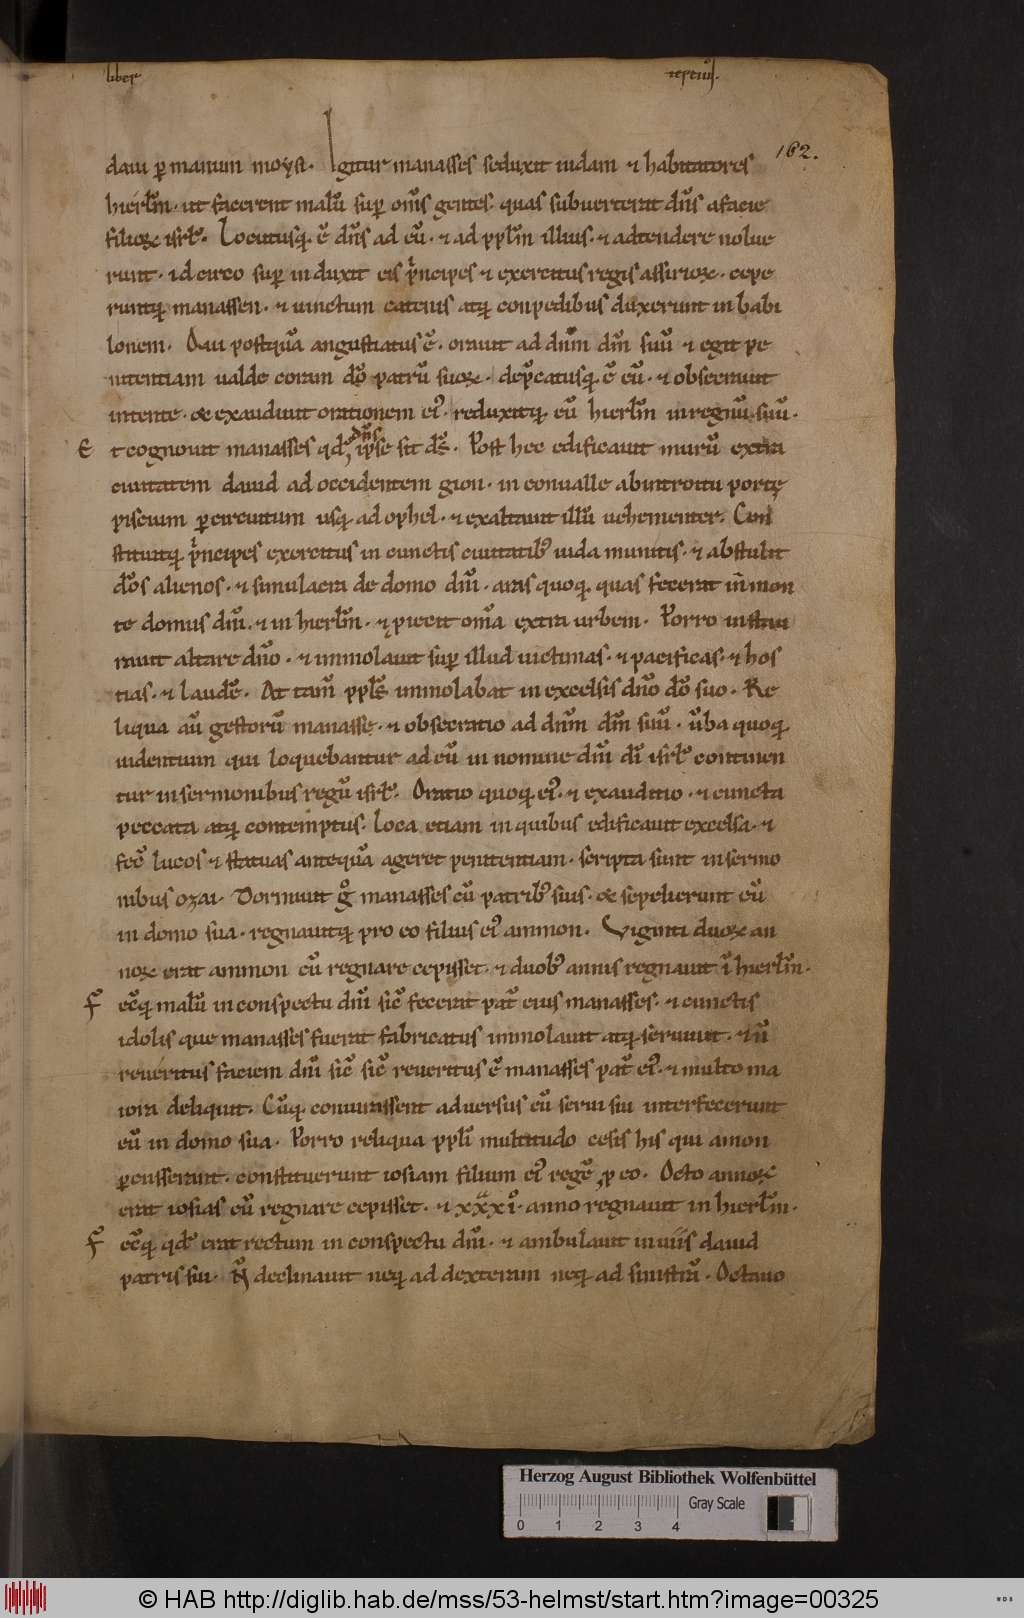 liber tertius.
162.
daui ꝑ manum moysi. Igitur manasses seduxit iudam ⁊ habitatores
hierl̅m. ut facerent malū suꝑ om̅s gentes. quas subuerterat dn̅s a facie
filioꝝ isrl̅. Locutusq; ē dn̅s ad eū. ⁊ ad ppl̅m illius. ⁊ adtendere nolue
runt. idcirco suꝑ induxit eis pͥncipes ⁊ exercitus regis assirioꝝ. cepe
runtq; manassen. ⁊ uinctum catenis atq; conpedibus duxerunt in babi
lonem. Qui postquā angustiatus ē. orauit ad dnm̅ dm̅ suū ⁊ egit pe
nitentiam ualde coram dō patrū suoꝝ. dep̅catusq; ē eū. ⁊ obsecrauit
intente. & exaudiuit orationem ei᾽. reduxitq; eū hierl̅m in regnū suū.
E t cognouit manasses qd̅ dn̅s ipse sit ds̅. Post hec edificauit murū extra
ciuitatem dauid ad occidentem gion. in conualle ab introitu portę
piscium ꝑ circuitum usq; ad ophel. ⁊ exaltauit illū uehementer. Con
stituitq; pͥncipes exercitus in cunctis ciuitatib᾽ iuda munitis. ⁊ abstulit
dōs alienos. ⁊ simulacra de domo dn̅i. aras quoq; quas fecerat in mon
te domus dn̅i. ⁊ in hierl̅m. ⁊ piecit om̅a extra urbem. Porro instau
rauit altare dn̅o. ⁊ immolauit suꝑ illud uictimas. ⁊ pacificas. ⁊ hos
tias. ⁊ laudē. At tam̅ ppl̅s immolabat in excelsis dn̅o dō suo. Re
liqua aū gestorū manasse. ⁊ obsecratio ad dnm̅ dm̅ suū. u̅ba quoq;
uidentium qui loquebantur ad eū in nomine dn̅i di̅ isrl̅ continen
tur in sermonibus regū isrl̅. Oratio quoq; ei᾽. ⁊ exauditio. ⁊ cuncta
peccata atq; contemptus. loca etiam in quibus edificauit excelsa. ⁊
fec̅ lucos ⁊ statuas antequā ageret penitentiam. scripta sunt in sermo
nibus ozai. Dormiuit gͦ manasses cū patrib᾽ suis. & sepelierunt eū
in domo sua. regnauitq; pro eo filius ei᾽ ammon. Viginti duoꝝ an
noꝝ erat ammon cū regnare cepisset. ⁊ duob᾽ annis regnauit ī hierl̅m.
F ec̅q; malū in conspectu dn̅i sic̅ fecerat pat̅ eius manasses. ⁊ cunctis
idolis que manasses fuerat fabricatus immolauit atq; seruiuit. ⁊ n̅
reueritus faciem dn̅i sic̅ sic̅ reueritus ē manasses pat̅ ei᾽. ⁊ multo ma
iora deliquit. Cūq; coniurassent aduersus eū serui sui interfecerunt
eū in domo sua. Porro reliqua ppl̅i multitudo cesis his qui amon
ꝑcusserant. constituerunt iosiam filium ei᾽ regē ꝓ eo. Octo annoꝝ
erat iosias cū regnare cepisset. ⁊ xxxi. anno regnauit in hierl̅m.
F ec̅q; qd̅ erat rectum in conspectu dn̅i. ⁊ ambulauit in uiis dauid
patris sui. N̅ declinauit neq; ad dexteram neq; ad sinistrā. Octauo
Herzog August Bibliothek Wolfenbüttel
Gray Scale
0 1 2 3 4
© HAB http://diglib.hab.de/mss/53-helmst/start.htm?image=00325